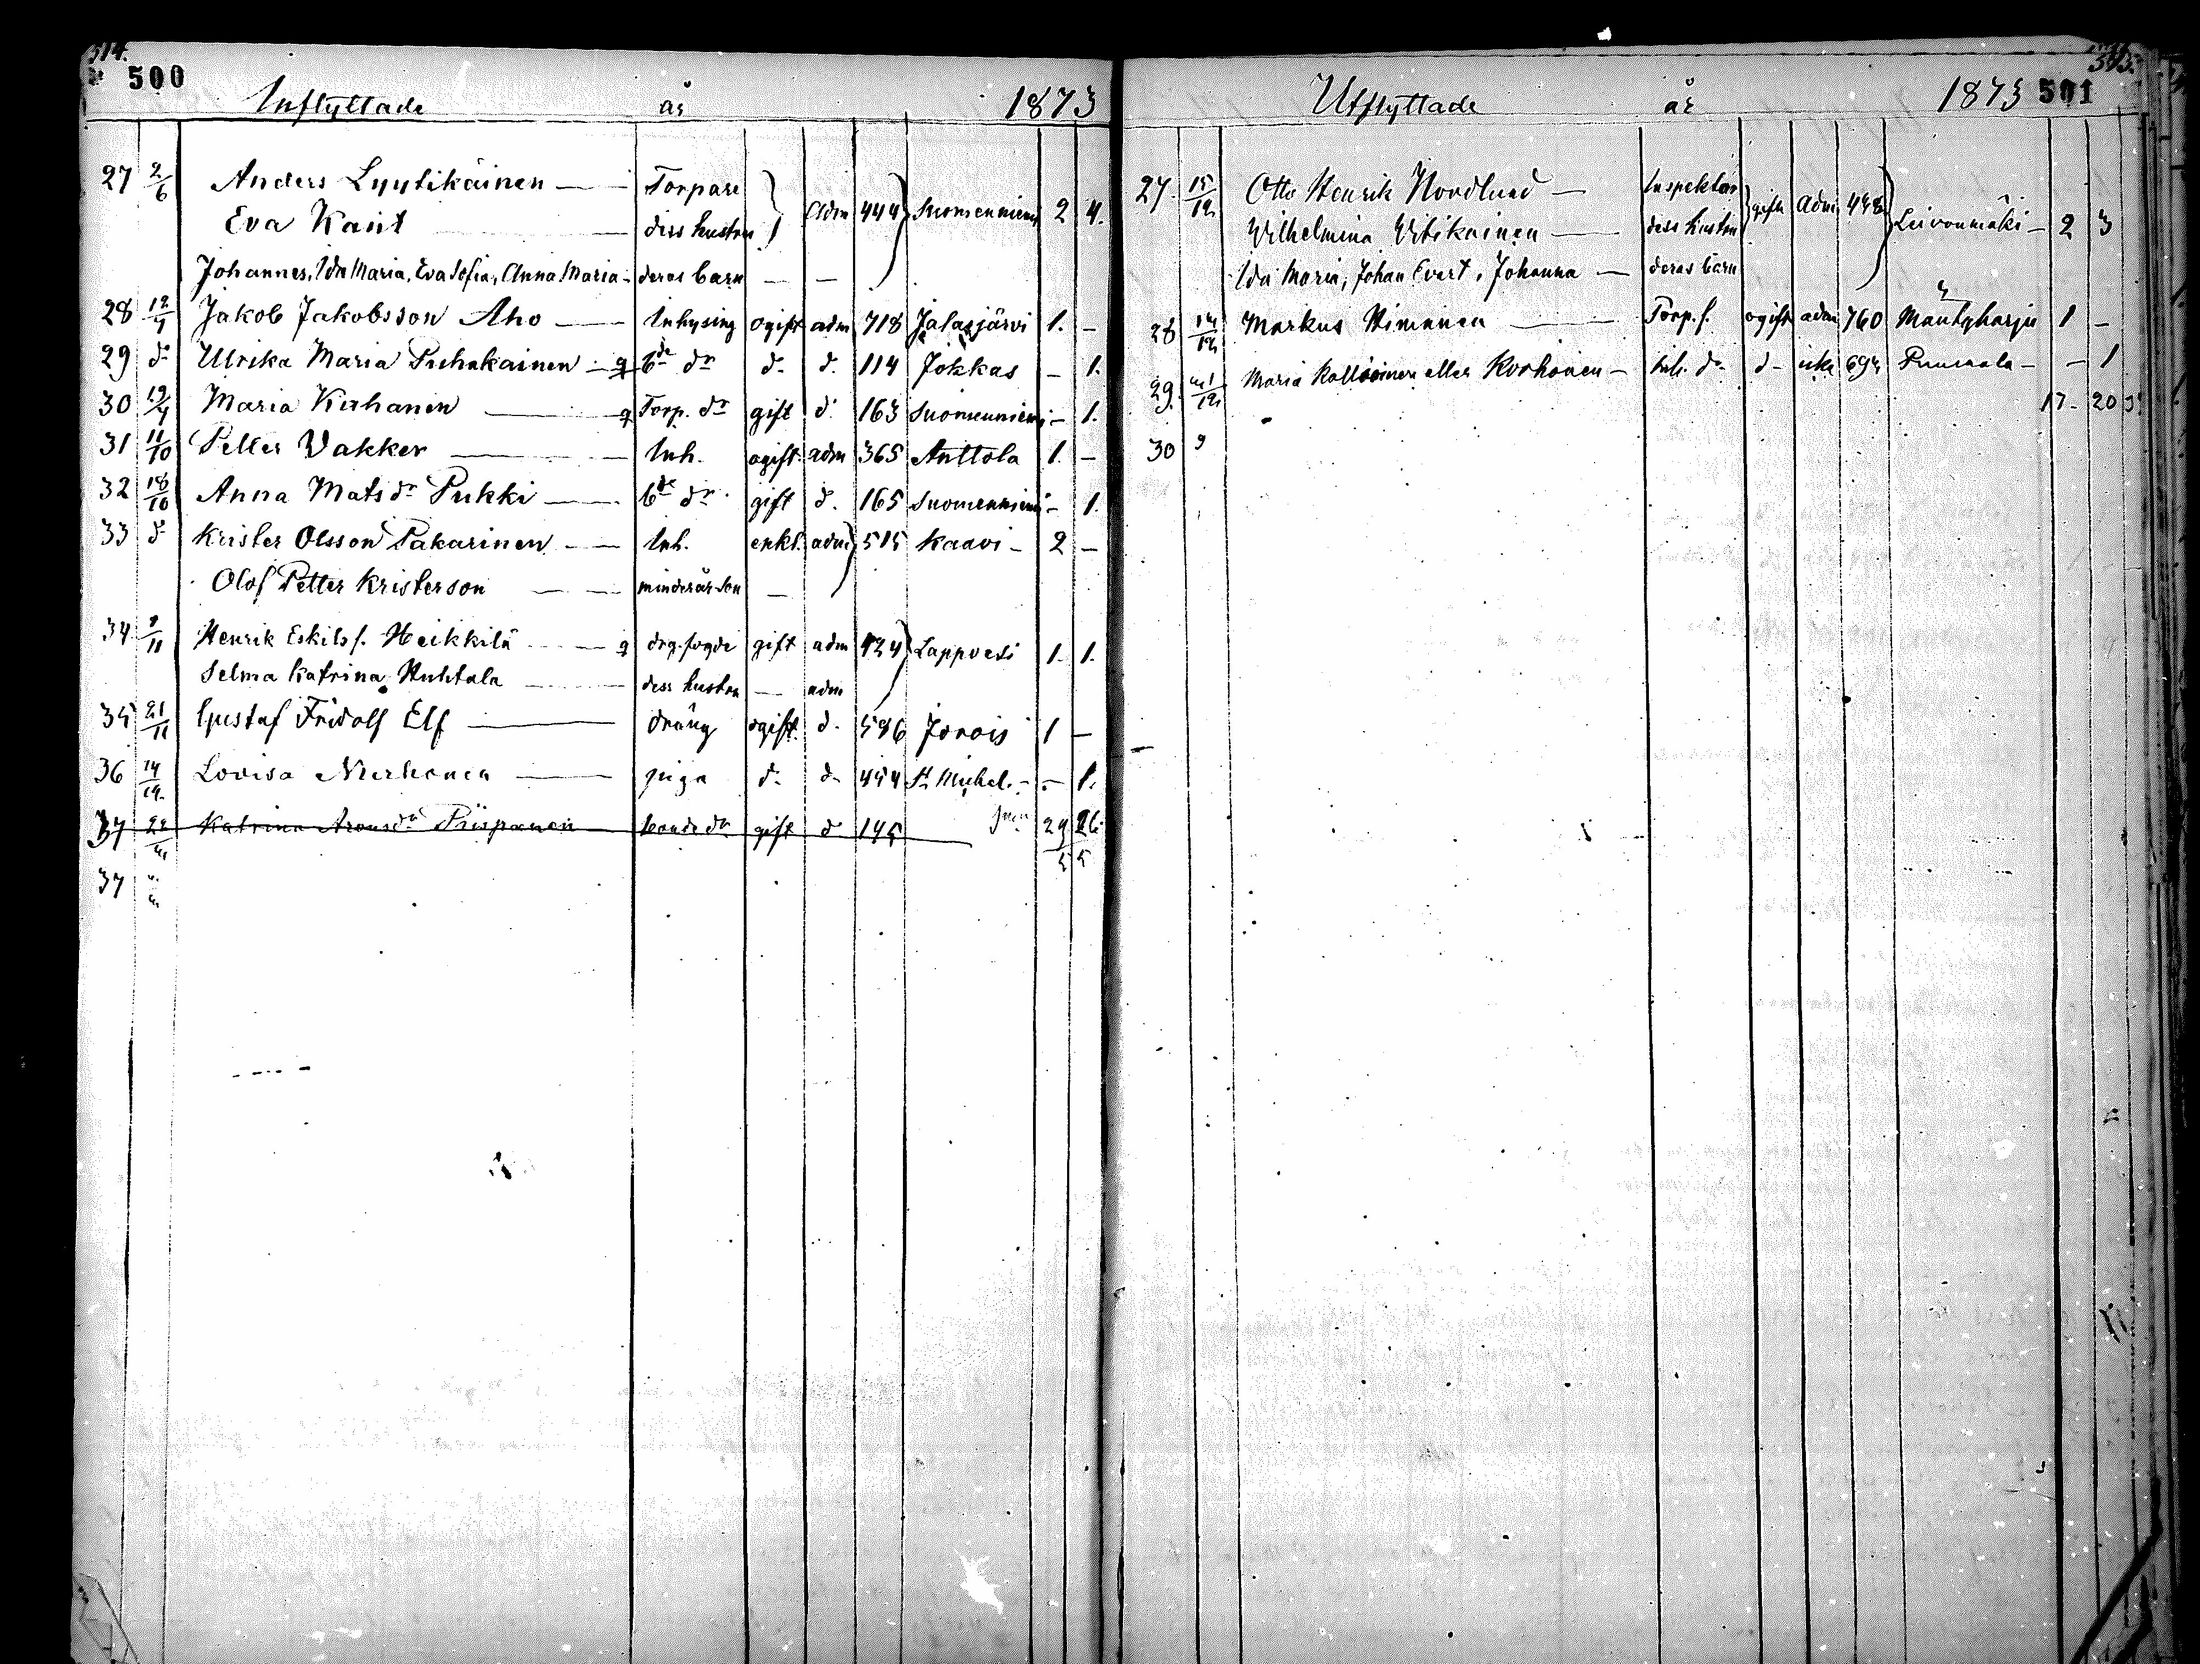 514.
500
Inflyttade år 1873
27 2/6 Anders Lyytikäinen — Torpare
Eva Kant — dess hustru } Adm 444 Suomenniemi 2 4.
Johannes, Ida Maria, Eva Sofia, Anna Maria - deras barn — —
28 12/7 Jakob Jakobsson Aho — Inhysing ogift adm 718 Jalasjärvi 1. -
29 d:o Ulrika Maria Puhakainen — g bde dr d. d. 114 Jokkas - 1.
30 19/7 Maria Kuhanen — g Torp. dr gift d. 163 Suomenniemi - 1.
31 11/10 Petter Vakker — Inh. ogift. adm 365 Anttola 1. -
32 18/10 Anna Mats dr Pukki — bde dr gift d. 165 Suomenniemi - 1.
33 d:o Krister Olsson Pakarinen — Inh. enkl. adm 515 Kaavi - 2 -
Olof Petter Kristerson — minderår. son —
34 /11 Henrik Eskilsf. Heikkilä — g drg. fogde gift adm 424 Lappvesi 1. 1.
Selma Katrina Huhtala — dess hustru — adm
35 21/11 Gustaf Fridolf Elf — dräng ogift. d. 596 Jorois 1 -
36 14/12. Lovisa Nurhonen — piga d. d. 454 St Michel. - - 1.
37 22/ Katrina Arons dr Piispanen bonde dr gift d 145
29 26
5 5
37
515.
Utflyttade år 1873 501
27. 15/12 Otto Henrik Nordlund — Inspektor
Wilhelmina Vitikainen — dess hustru } gifta Adm 448 Leivonmäki - 2 3
Ida Maria, Johan Evert, Johanna — deras barn
28 /12 Markus Himanen — Torp. s. ogift adm 760 Mäntyharju 1 -
29. /12 Maria Kolloinen eller Korhonen - inh. dr d - icke 692 Puumala - - 1
17 - 20
30